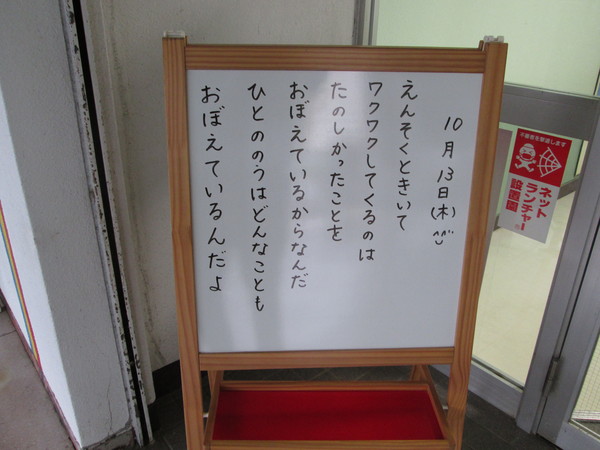 10月13日(木)
えんそくときいて
ワクワクしてくるのは
たのしかったことを
おぼえているからなんだ
ひとののうはどんなことも
おぼえているんだよ
不審者を撃退します
ネット
ランチャー
設置園